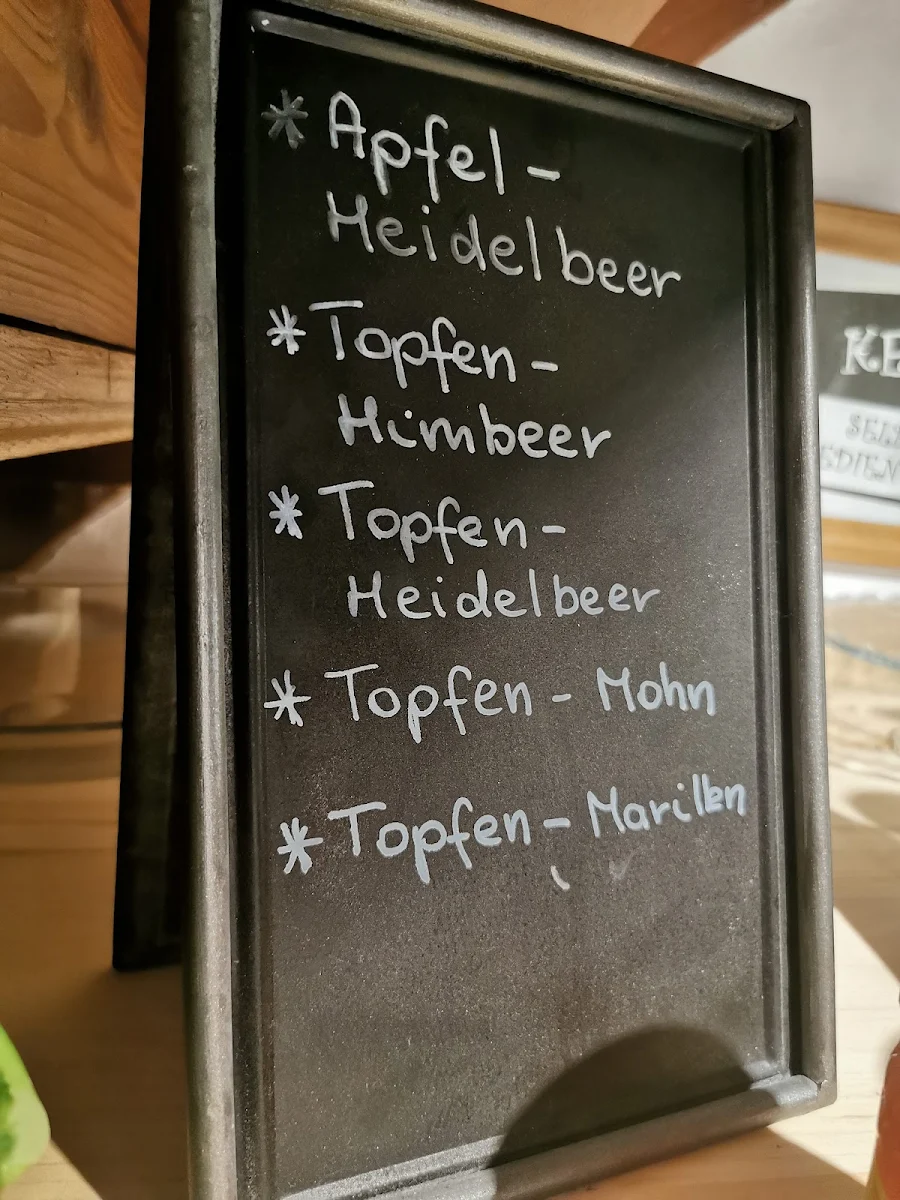 * Apfel -
Heidelbeer
* Topfen -
Himbeer
* Topfen -
Heidelbeer
* Topfen - Mohn
* Topfen - Marillen